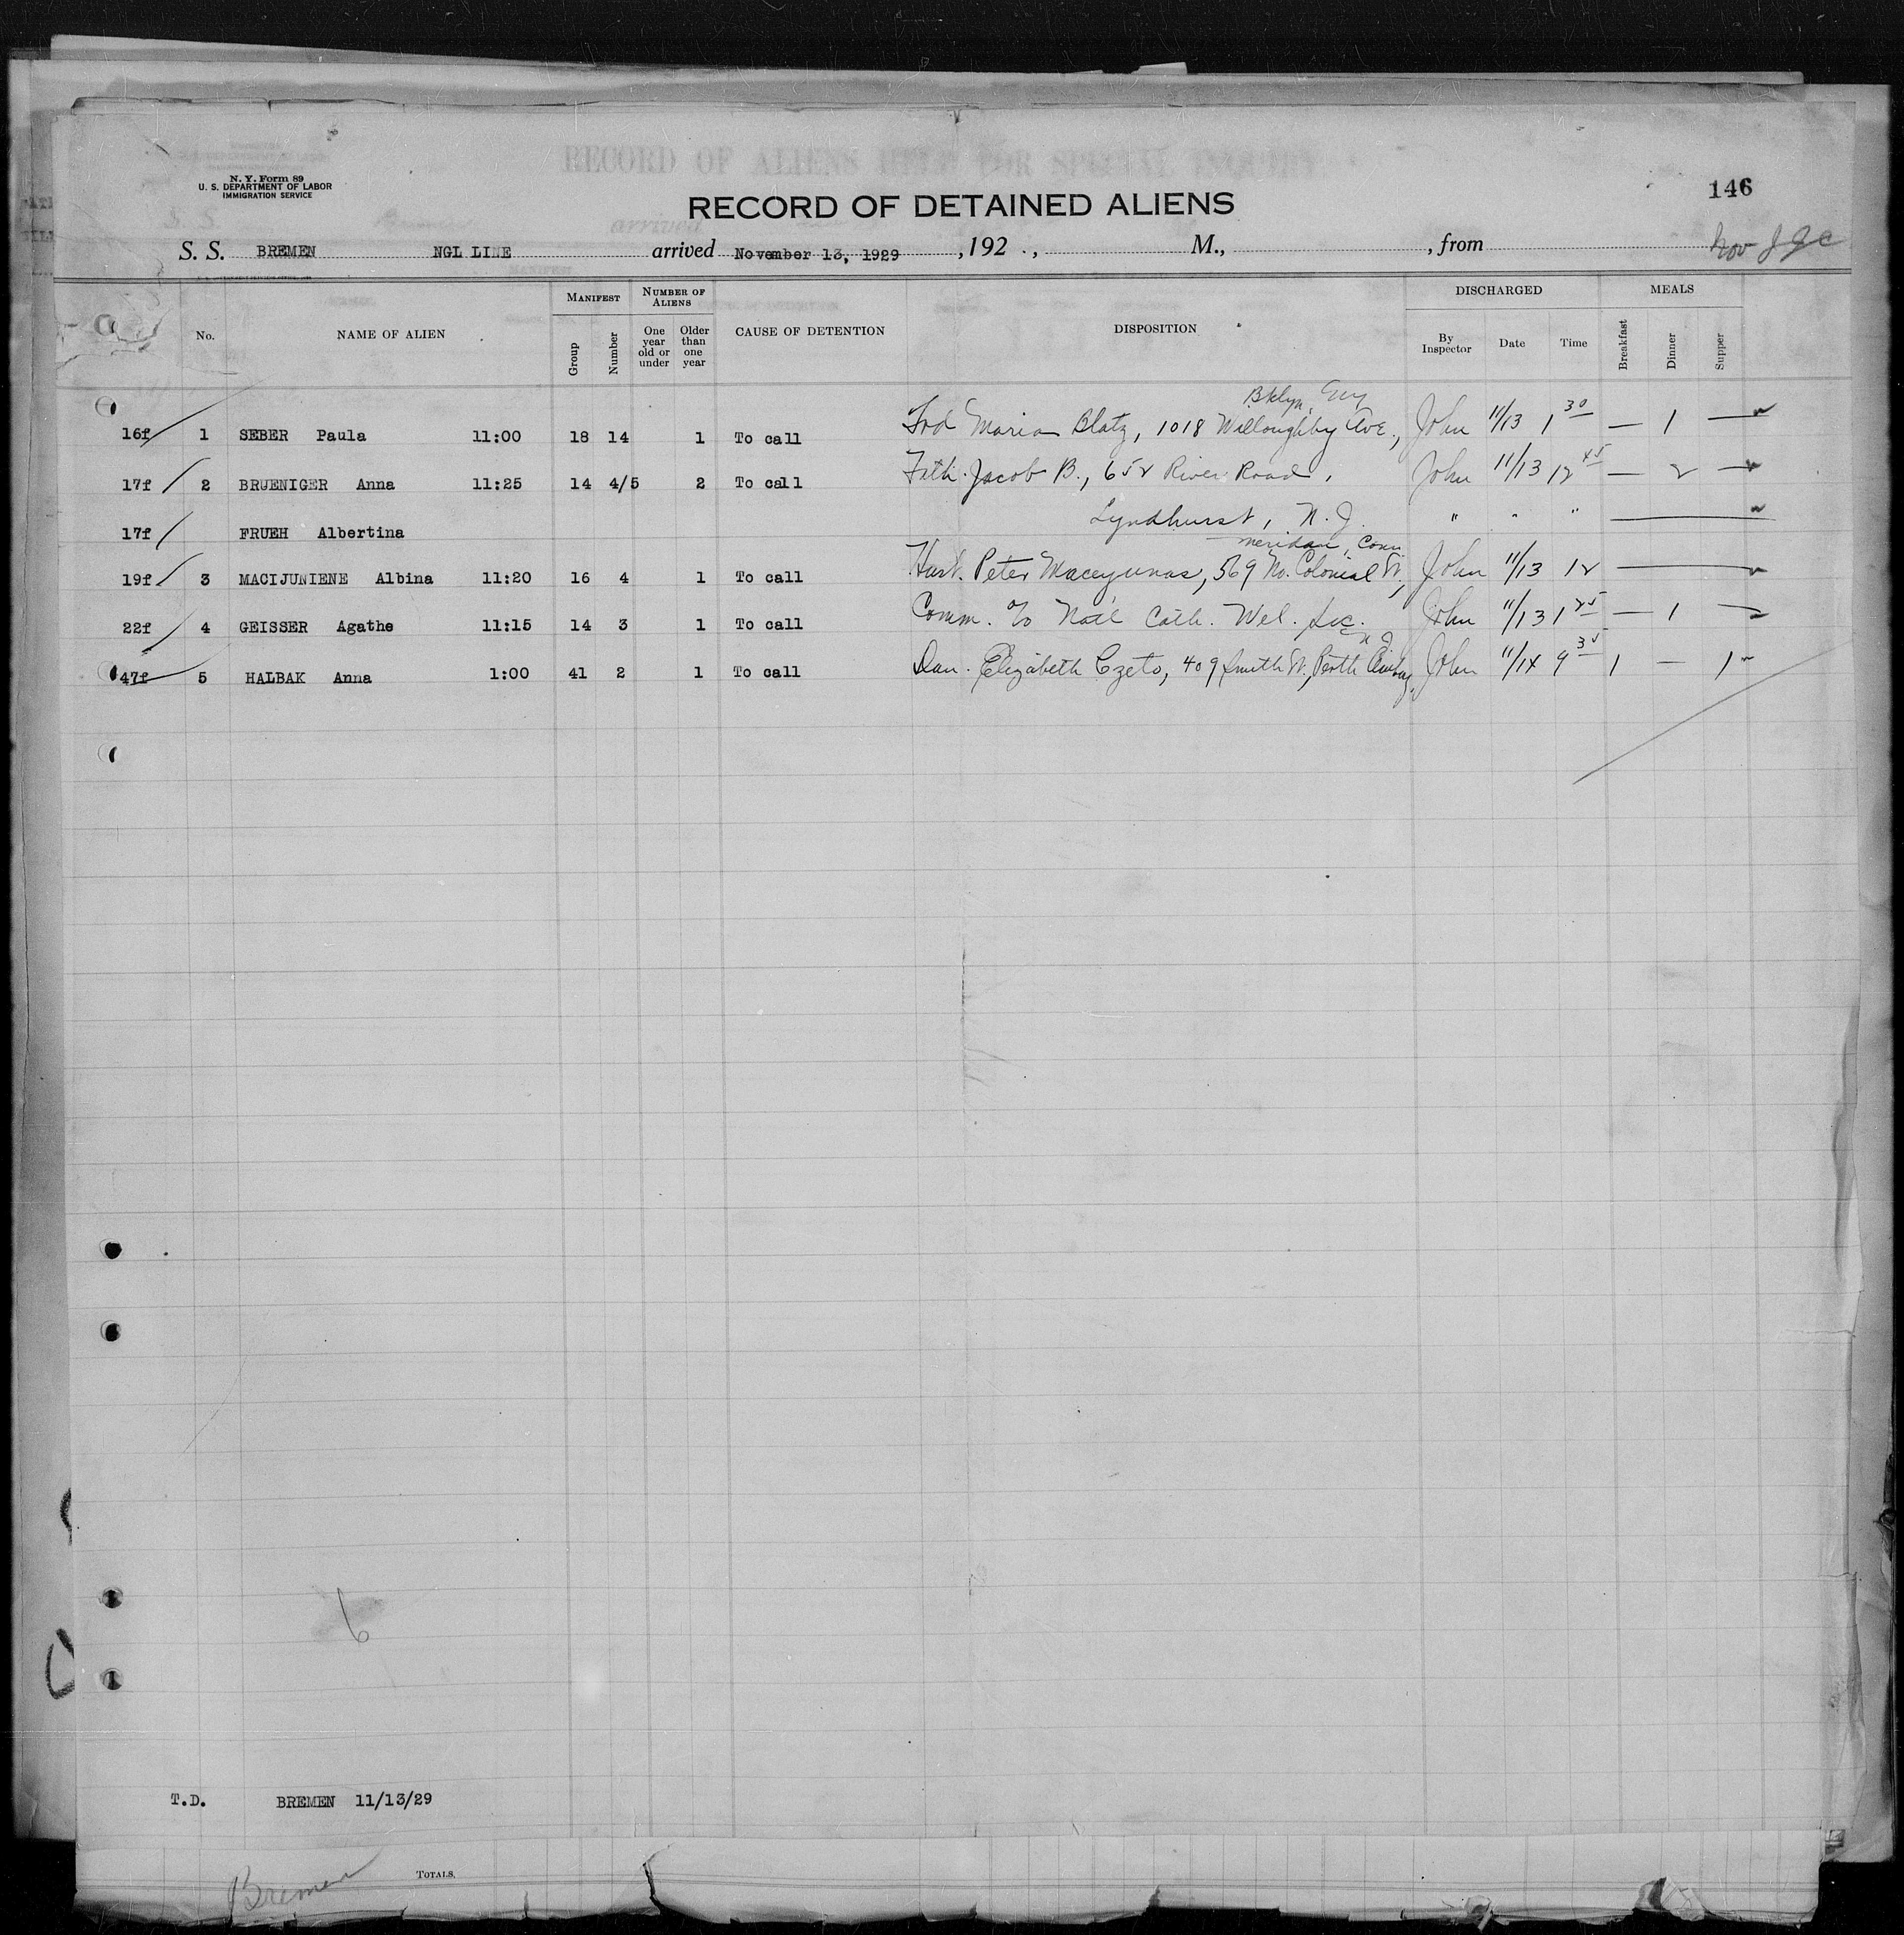 N. Y. Form 89
U. S. DEPARTMENT OF LABOR
IMMIGRATION SERVICE
RECORD OF ALIENS HELD FOR SPECIAL INQUIRY
146
RECORD OF DETAINED ALIENS
S. S. BREMEN NGL LINE arrived November 13, 1929, 192 , M., , from Nov
MANIFEST NUMBER OF ALIENS DISCHARGED MEALS
No. NAME OF ALIEN Group Number One year old or under Older than one year CAUSE OF DETENTION DISPOSITION By Inspector Date Time Breakfast Dinner Supper
Bklyn,
16f 1 SEBER Paula 11:00 18 14 1 To call Frd Maria Blatz, 1018 Willoughby Ave., John 11/13 1 30 — 1 —
17f 2 BRUENIGER Anna 11:25 14 4/5 2 To call Fath. Jacob B., 652 River Road, John 11/13 12 45 — 2 —
17f FRUEH Albertina Lyndhurst, N. J. " " "
Meriden, Conn.
19f 3 MACIJUNIENE Albina 11:20 16 4 1 To call Husb. Peter Maceyunas, 569 No. Colonial St, John 11/13 12
22f 4 GEISSER Agathe 11:15 14 3 1 To call Comm. % Nat'l Cath. Wel. John 11/13 1 25 — 1 —
N J
47f 5 HALBAK Anna 1:00 41 2 1 To call Dau. Elizabeth Czeto, 409 Smith St, Perth Amboy, John 11/14 9 35 1 — 1
6
T.D. BREMEN 11/13/29
Bremen TOTALS.